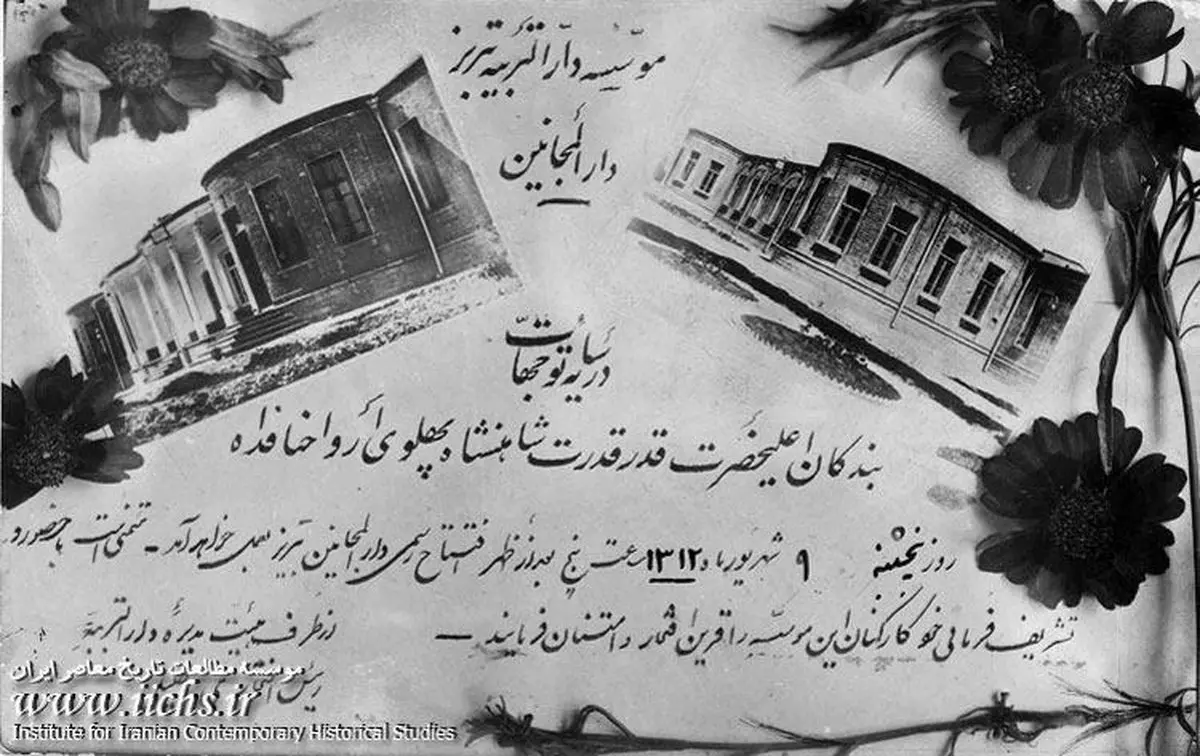 مؤسسه دارالتربیه تبریز
دارالمجانین
در سایه توجهات
بندگان اعلیحضرت قدر قدرت شاهنشاه پهلوی ارواحنا فداه
روز پنجشنبه ۹ شهریور ماه ۱۳۱۲ ساعت پنج بعد از ظهر افتتاح رسمی دارالمجانین تبریز بعمل خواهد آمد - متمنی است با حضور و
تشریف فرمائی خود کارکنان این مؤسسه را قرین افتخار و امتنان فرمایند —
از طرف هیئت مدیره دارالتربیه
رئیس
موسسۀ مطالعات تاریخ معاصر ایران
www.iichs.ir
Institute for Iranian Contemporary Historical Studies